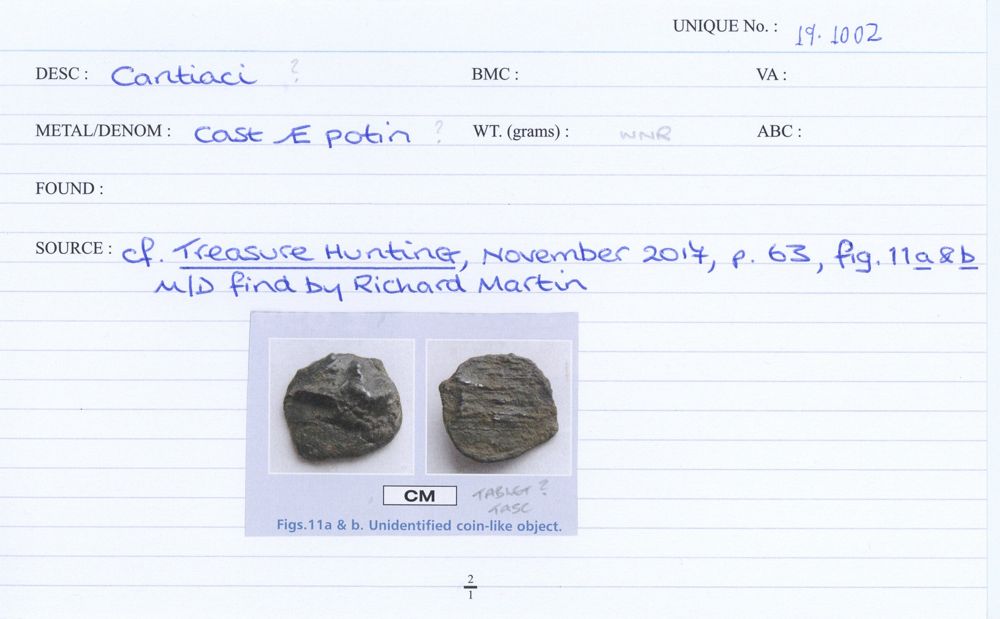 UNIQUE No. : 19.1002
DESC : Cantiaci ? BMC : VA :
METAL/DENOM : Cast Æ potin ? WT. (grams) : WNR ABC :
FOUND :
SOURCE : cf. Treasure Hunting, November 2017, p. 63, fig. 11a & b
M/D find by Richard Martin
CM TABLET?
TASC
Figs.11a & b. Unidentified coin-like object.
2
1